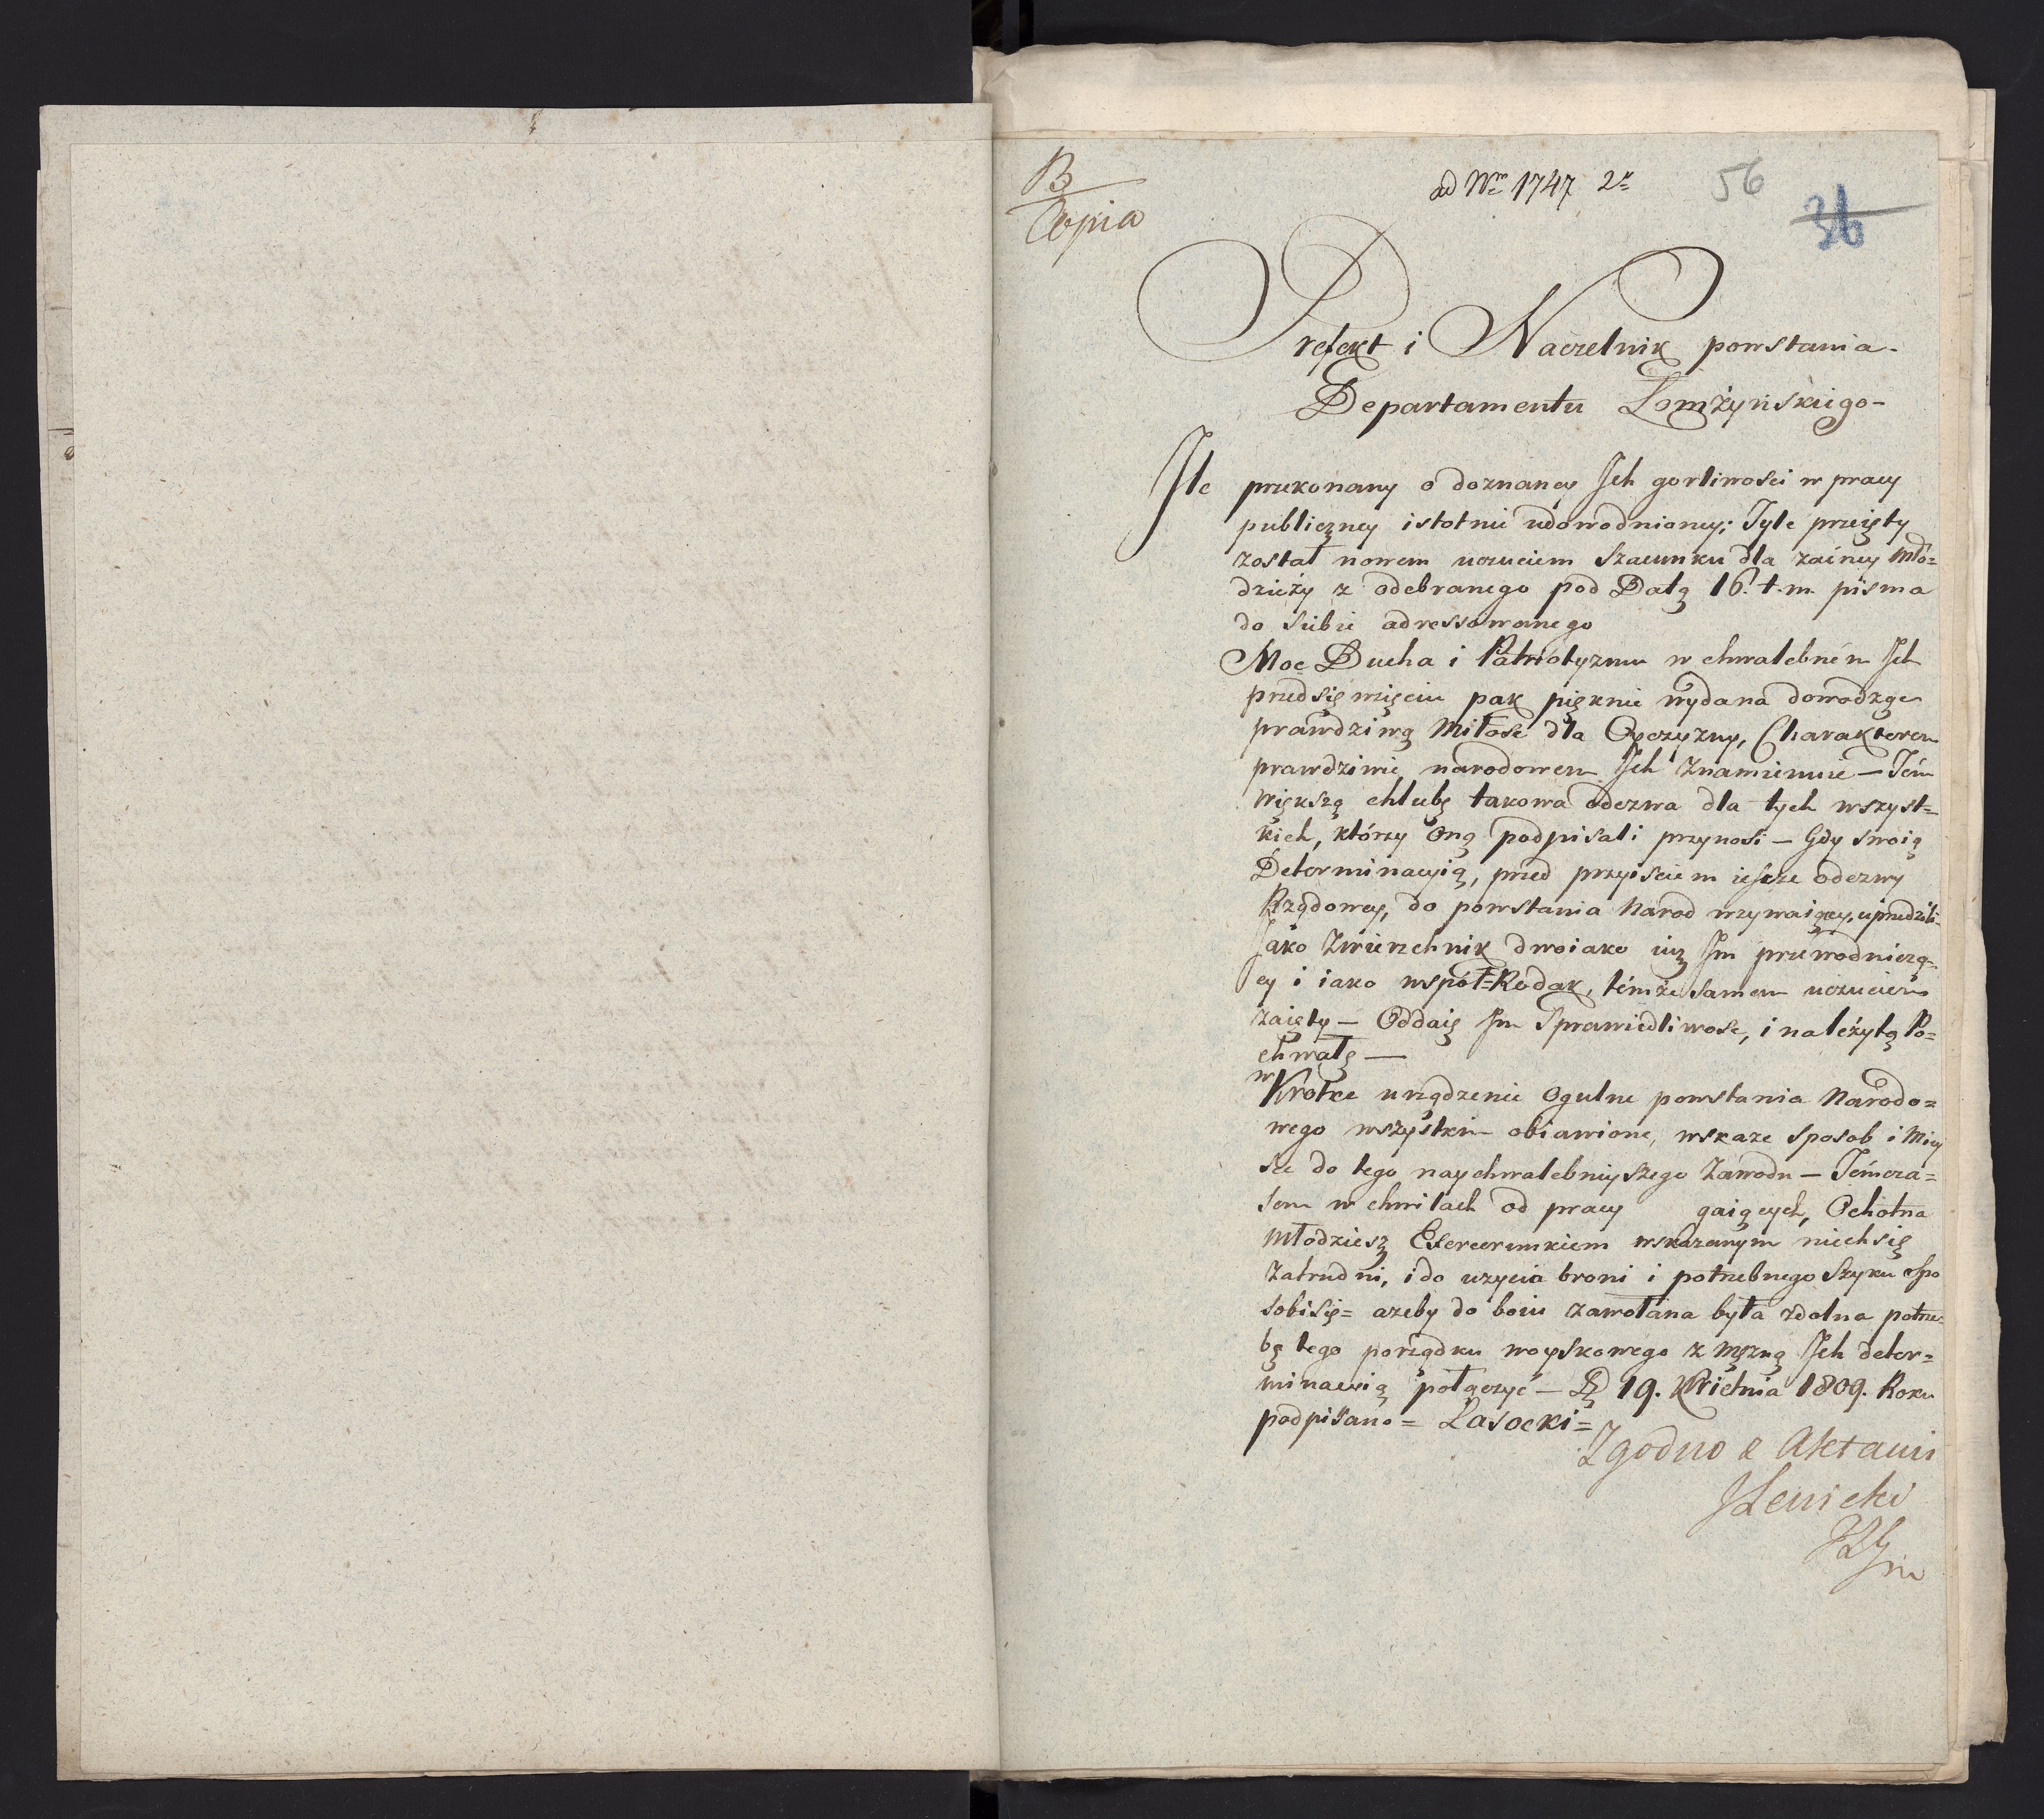 B
Copia
ad Nro 1747 2r
56
36
Prefekt i Naczelnik powstania
Departamentu Łomżyńskiego-
Ile przekonany o doznaney Ich gorliwości w pracy
publiczney istotnie udowodnioney; Tyle przeięty
został nowem uczuciem Szacunku dla zaćney Mło=
dzieży z odebranego pod Datą 16. t.m. pisma
do siebie adressowanego
Moc Ducha i Patriotyzmu w chwalebném Ich
przedsięwzięciu pak pięknie wydana dowodząc
prawdziwą Miłość dla Oyczyzny, Charakterem
prawdziwie narodowem Ich Znamienuie — Tém
większą chlubę takowa odezwa dla tych wszyst=
kich, którzy Oną podpisali przynosi — Gdy swoią
Determinacyią, przed przyiściem ieszcze odezwy
Rządowey, do powstania Narod wzywaiącey, uprzedzili
Jako Zwierzchnik dwoiako iuż Im przewodniczą=
cy i iako współ=Rodak, témże samem uczuciem
zaięty — Oddaię Im Sprawiedliwość, i należytą Po=
chwałę —
w Krotce urządzenie Ogulne powstania Narodo=
wego wszystkim obiawione, wskaże sposob i Miey
sce do tego naychwalebnieyszego Zawodu — Témcza=
sem w chwilach od pracy gaiących, Ochotna
Młodziesz Exercerunkiem wskazanym niech się
Zatrudni, i do uzycia broni i potrzebnego Szyku spo
sobi się = azeby do boiu zawołana była zdolna potrze=
bę tego porządku woyskowego z mężną Ich deter=
minacyią połączyć — D 19. Kwietnia 1809. Roku
podpisano = Lasocki =
Zgodno z Aktami
JLenicki